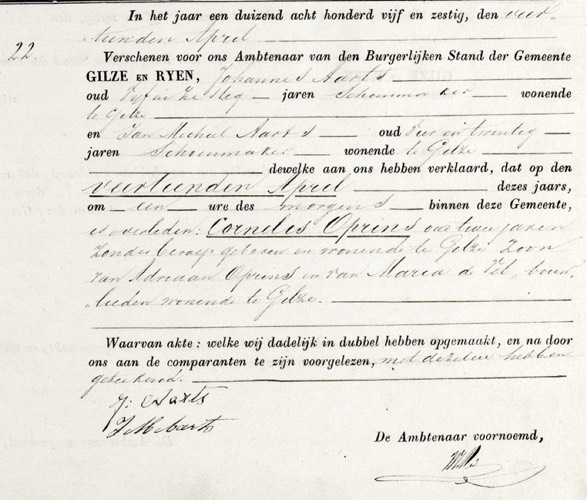 In het jaar een duizend acht honderd vijf en zestig, den veer-
tienden April
22.
Verschenen voor ons Ambtenaar van den Burgerlijken Stand der Gemeente
GILZE EN RYEN, Johannes Aarts
oud Vyf en Zestig jaren Schoenmaker wonende
te Gilze
en Jan Michiel Aarts oud Vier en twintig
jaren Schoenmaker wonende te Gilze
dewelke aan ons hebben verklaard, dat op den
veertienden April dezes jaars,
om een ure des morgens binnen deze Gemeente,
is overleden: Cornelis Oprins oud twee jaren
zonder beroep geboren en wonende te Gilze Zoon
van Adriaan Oprins en van Maria de Vet, bouw-
lieden wonende te Gilze.
Waarvan akte: welke wij dadelijk in dubbel hebben opgemaakt, en na door
ons aan de comparanten te zijn voorgelezen, met dezelve hebben
geteekend.
J: Aarts
J M Aarts
De Ambtenaar voornoemd,